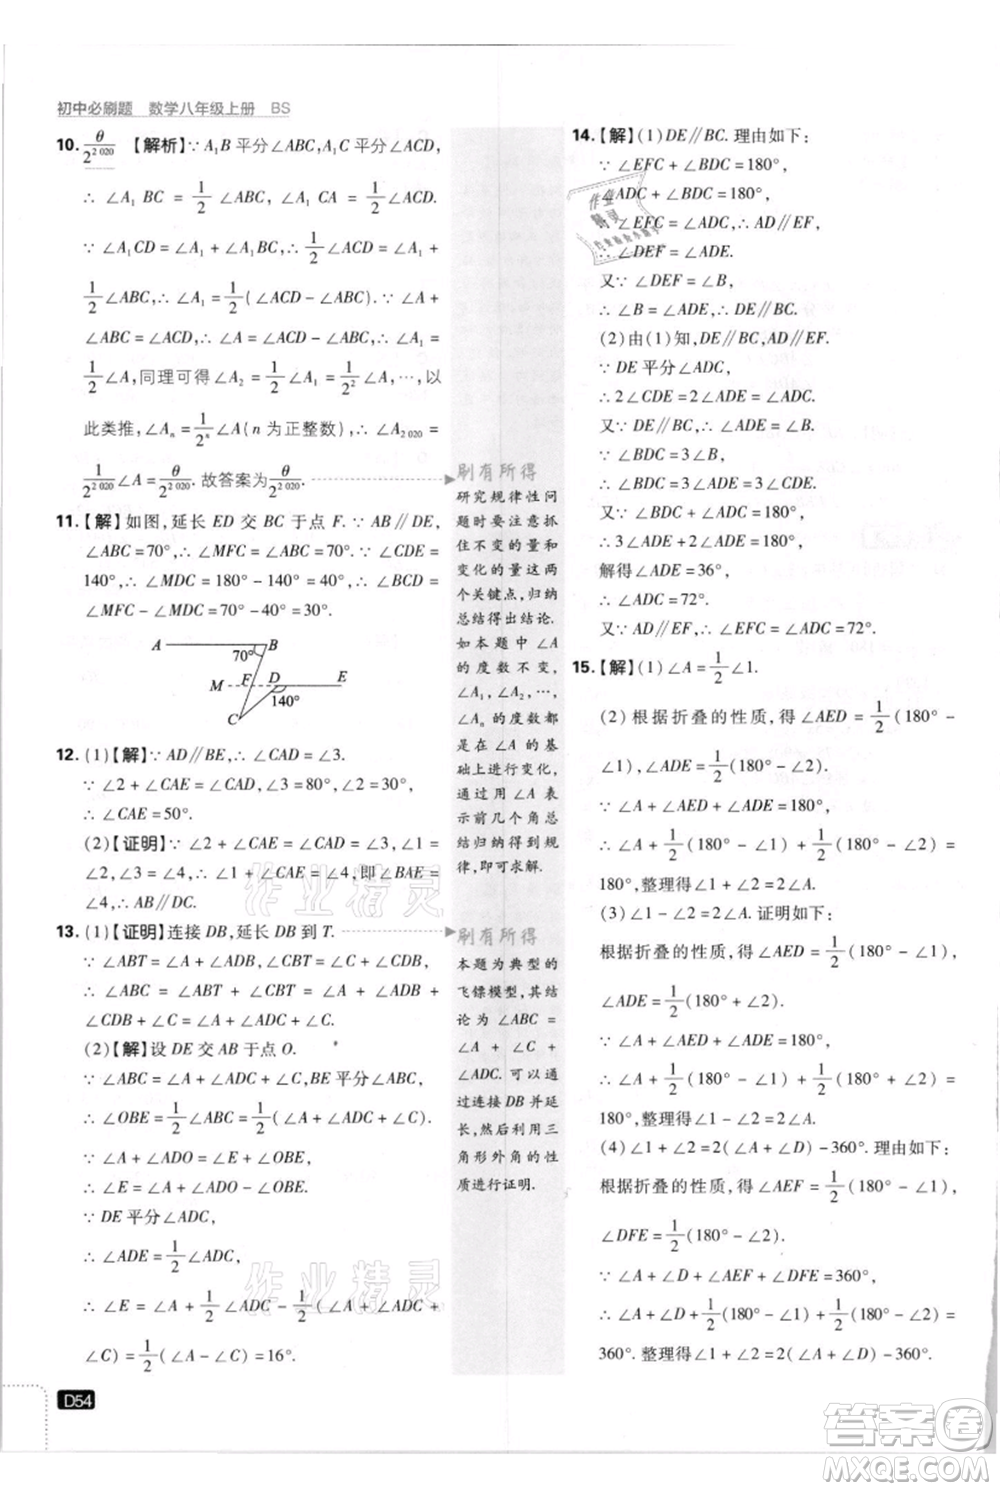 初中必刷题 数学八年级上册 BS
10. θ/2^{2 020} 【解析】∵ A₁B 平分∠ABC, A₁C 平分∠ACD,
∴ ∠A₁BC = 1/2∠ABC, ∠A₁CA = 1/2∠ACD.
∵ ∠A₁CD = ∠A₁ + ∠A₁BC, ∴ 1/2∠ACD = ∠A₁ +
1/2∠ABC, ∴ ∠A₁ = 1/2(∠ACD − ∠ABC). ∵ ∠A +
∠ABC = ∠ACD, ∴ ∠A = ∠ACD − ∠ABC, ∴ ∠A₁ =
1/2∠A, 同理可得∠A₂ = 1/2∠A₁ = 1/2²∠A, ⋯, 以
此类推, ∠Aₙ = 1/2ⁿ∠A(n 为正整数), ∴ ∠A_{2 020} =
1/2^{2 020}∠A = θ/2^{2 020}. 故答案为θ/2^{2 020}.
11. 【解】如图, 延长 ED 交 BC 于点 F. ∵ AB∥DE,
∠ABC = 70°, ∴ ∠MFC = ∠ABC = 70°. ∵ ∠CDE =
140°, ∴ ∠MDC = 180° − 140° = 40°, ∴ ∠BCD =
∠MFC − ∠MDC = 70° − 40° = 30°.
A B
70°
M F D E
140°
C
12. (1)【解】∵ AD∥BE, ∴ ∠CAD = ∠3.
∵ ∠2 + ∠CAE = ∠CAD, ∠3 = 80°, ∠2 = 30°,
∴ ∠CAE = 50°.
(2)【证明】∵ ∠2 + ∠CAE = ∠CAD = ∠3, ∠1 =
∠2, ∠3 = ∠4, ∴ ∠1 + ∠CAE = ∠4, 即∠BAE =
∠4, ∴ AB∥DC.
13. (1)【证明】连接 DB, 延长 DB 到 T.
∵ ∠ABT = ∠A + ∠ADB, ∠CBT = ∠CDB + ∠C,
∴ ∠ABC = ∠ABT + ∠CBT = ∠A + ∠ADB +
∠CDB + ∠C = ∠A + ∠ADC + ∠C.
(2)【解】设 DE 交 AB 于点 O.
∵ ∠ABC = ∠A + ∠ADC + ∠C, BE 平分∠ABC,
∴ ∠OBE = 1/2∠ABC = 1/2(∠A + ∠ADC + ∠C).
∵ ∠A + ∠ADO = ∠E + ∠OBE,
∴ ∠E = ∠A + ∠ADO − ∠OBE.
∵ DE 平分∠ADC,
∴ ∠ADE = 1/2∠ADC,
∴ ∠E = ∠A + 1/2∠ADC − 1/2(∠A + ∠ADC +
∠C) = 1/2(∠A − ∠C) = 16°.
D54
刷有所得
研究规律性问
题时要注意抓
住不变的量和
变化的量这两
个关键点, 归纳
总结得出结论.
如本题中∠A
的度数不变,
∠A₁, ∠A₂, ⋯,
∠Aₙ 的度数都
是在∠A 的基
础上进行变化,
通过用∠A 表
示前几个角总
结归纳得到规
律, 即可求解.
刷有所得
本题为典型的
飞镖模型, 其结
论为∠ABC =
∠A + ∠C +
∠ADC. 可以通
过连接 DB 并延
长, 然后利用三
角形外角的性
质进行证明.
14. 【解】(1)DE∥BC. 理由如下:
∵ ∠EFC + ∠BDC = 180°,
∠ADC + ∠BDC = 180°,
∴ ∠EFC = ∠ADC, ∴ AD∥EF,
∴ ∠DEF = ∠ADE.
又∵ ∠DEF = ∠B,
∴ ∠B = ∠ADE, ∴ DE∥BC.
(2)由(1)知, DE∥BC, AD∥EF.
∵ DE 平分∠ADC,
∴ 2∠CDE = 2∠ADE = ∠ADC.
又∵ DE∥BC, ∴ ∠ADE = ∠B.
又∵ ∠BDC = 3∠B,
∴ ∠BDC = 3∠ADE = 3∠CDE.
又∵ ∠BDC + ∠ADC = 180°,
∴ 3∠ADE + 2∠ADE = 180°,
解得∠ADE = 36°,
∴ ∠ADC = 72°.
又∵ AD∥EF, ∴ ∠EFC = ∠ADC = 72°.
15. 【解】(1)∠A = 1/2∠1.
(2) 根据折叠的性质, 得∠AED = 1/2(180° −
∠1), ∠ADE = 1/2(180° − ∠2).
∵ ∠A + ∠AED + ∠ADE = 180°,
∴ ∠A + 1/2(180° − ∠1) + 1/2(180° − ∠2) =
180°, 整理得∠1 + ∠2 = 2∠A.
(3) ∠1 − ∠2 = 2∠A. 证明如下:
根据折叠的性质, 得∠AED = 1/2(180° − ∠1),
∠ADE = 1/2(180° + ∠2).
∵ ∠A + ∠AED + ∠ADE = 180°,
∴ ∠A + 1/2(180° − ∠1) + 1/2(180° + ∠2) =
180°, 整理得∠1 − ∠2 = 2∠A.
(4)∠1 + ∠2 = 2(∠A + ∠D) − 360°. 理由如下:
根据折叠的性质, 得∠AEF = 1/2(180° − ∠1),
∠DFE = 1/2(180° − ∠2).
∵ ∠A + ∠D + ∠AEF + ∠DFE = 360°,
∴ ∠A + ∠D + 1/2(180° − ∠1) + 1/2(180° − ∠2) =
360°, 整理得∠1 + ∠2 = 2(∠A + ∠D) − 360°.
作业精灵
作业精灵
作业精灵
答案卷
MXQE.COM